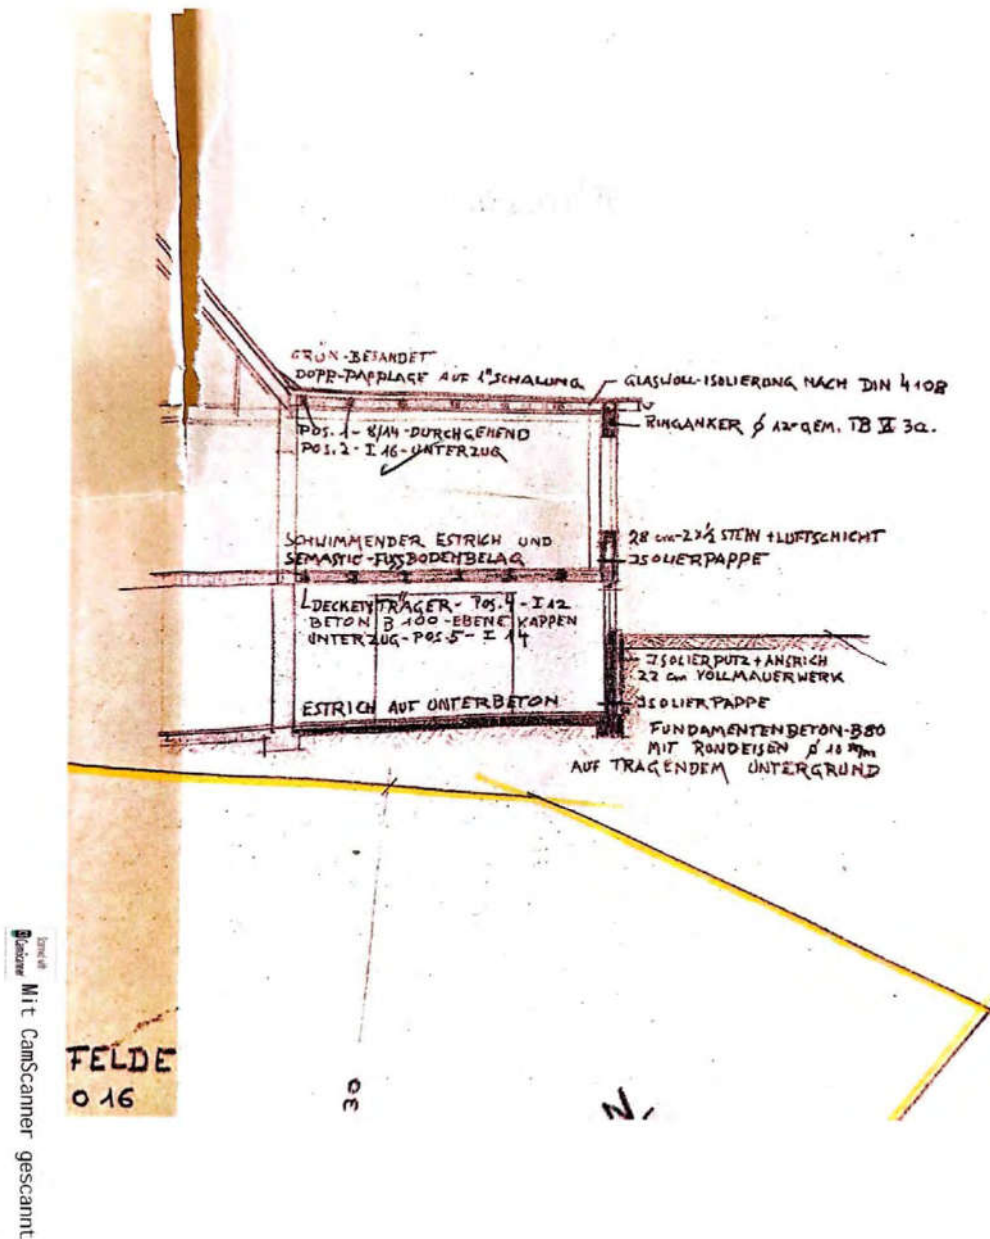 GRÜN-BESANDET
DOPP-PAPPLAGE AUF 1" SCHALUNG
GLASWOLL-ISOLIERUNG NACH DIN 4108
RINGANKER ϕ 12-GEM. TB VI 3a.
POS. 1 - 8/14 - DURCHGEHEND
POS. 2 - I 16 - UNTERZUG
28 cm - 2x½ STEIN + LUFTSCHICHT
ISOLIERPAPPE
SCHWIMMENDER ESTRICH UND
SEMASTIC-FUSSBODENBELAG
DECKENTRÄGER - POS. 4 - I 12
BETON B 100 - EBENE KAPPEN
UNTERZUG - POS. 5 - I 14
ISOLIERPUTZ + ANSRICH
22 cm VOLLMAUERWERK
ESTRICH AUF UNTERBETON
ISOLIERPAPPE
FUNDAMENTENBETON-B80
MIT RONDEISEN ϕ 10 mm
AUF TRAGENDEM UNTERGRUND
FELDE
0 16
30
N,
Mit CamScanner gescannt